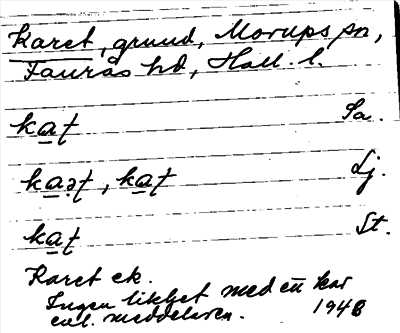 Karet, grund, Morups sn,
Faurås hd, Hall. l.
ka̲ʈ Sa.
ka̲əʈ, ka̲ʈ Lj.
ka̲ʈ St.
Karet ek.
Ingen likhet med ett kar
enl. meddelaren. 1948